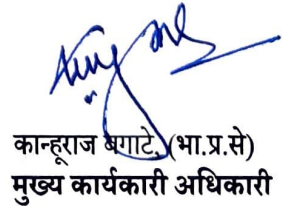 कान्हूराज बगाटे, (भा.प्र.से)
मुख्य कार्यकारी अधिकारी